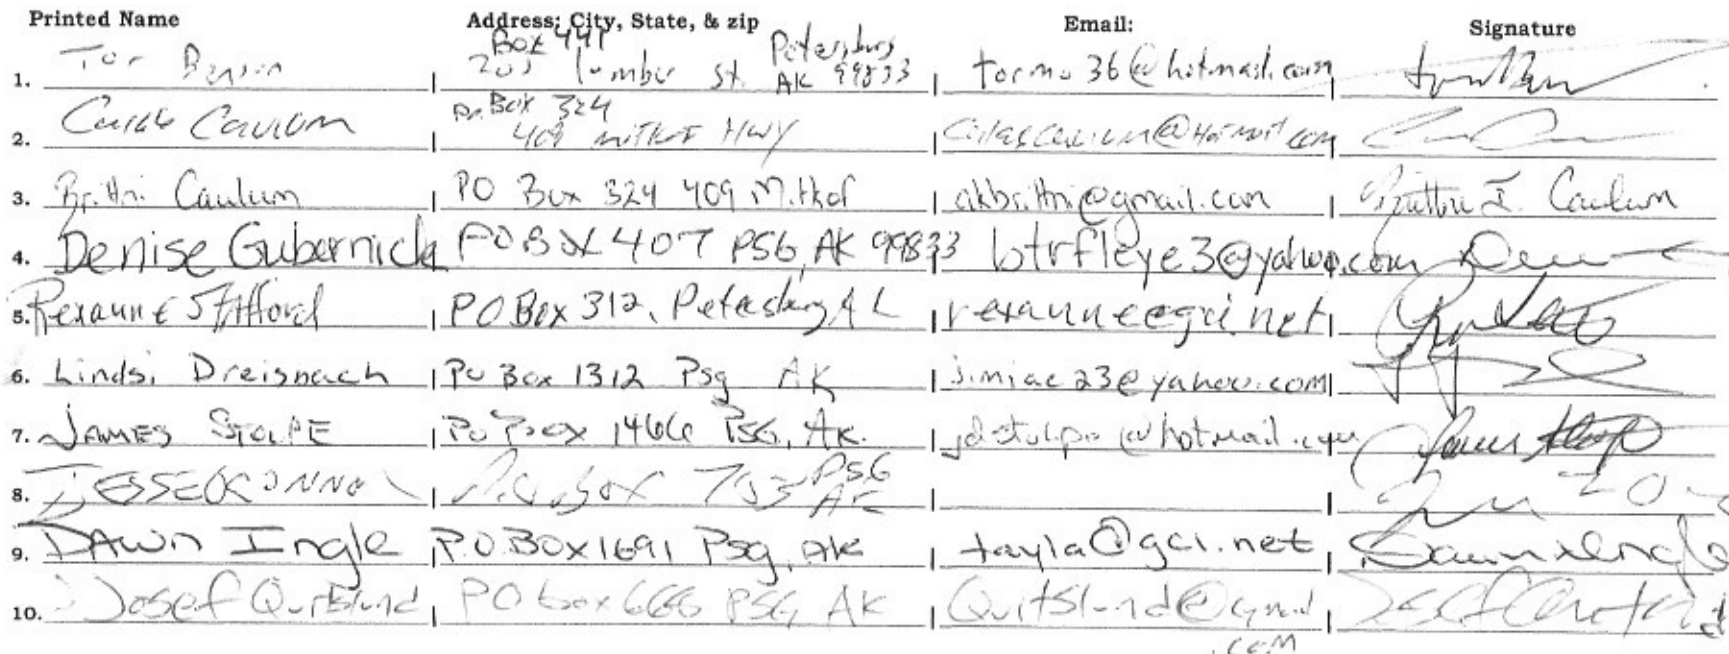 Printed Name Address; City, State, & zip Email: Signature
1. Tor Benson Box 441 203 lumber st. Petersburg AK 99833 tormo36@hotmail.com
2. Caleb Caulum PO Box 324 409 mitkof HWY @Hotmail.com
3. Brittni Caulum PO Box 324 409 Mitkof akbrittni@gmail.com Brittni I. Caulum
4. Denise Gubernick PO Box 407 PSG, AK 99833 btrfleye3@yahoo.com
5. Rexanne Stafford PO Box 312, Petersburg AK rexanne@gci.net
6. Lindsi Dreisnach Po Box 1312 Psg AK jimiac23@yahoo.com
7. JAMES STOLPE Po Box 1466 PSG, AK. @hotmail.com
8. JESSE OCONNOR P.O. Box 703 PSG AK
9. DAWN Ingle P.O. BOX 1691 Psg, AK tayla@gci.net Dawn Ingle
10. Josef Quitslund PO box 666 PSG, AK Quitslund@gmail.com